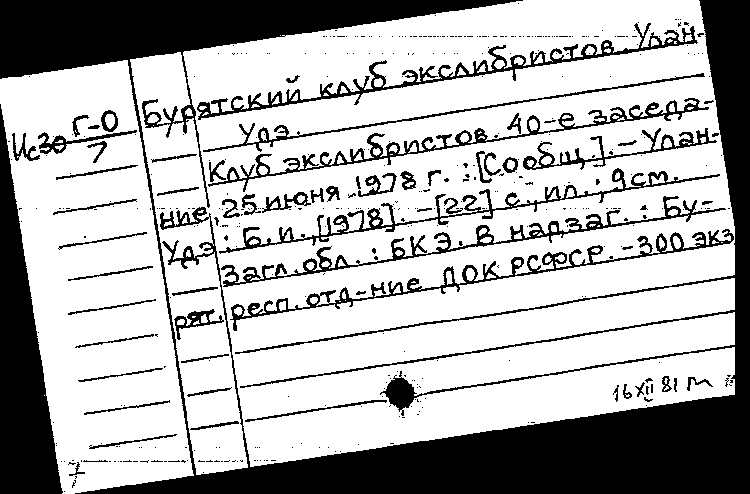 Исзо Г-О
7
Бурятский клуб экслибристов. Улан-
Удэ.
Клуб экслибристов. 40-е заседа-
ние, 25 июня 1978 г. : [Сообщ.]. – Улан-
Удэ : Б.и., [1978]. – [22] с., ил. ; 9 см.
Загл. обл. : БКЭ. В надзаг. : Бу-
рят. респ. отд-ние ДОК РСФСР. - 300 экз
16 XII 81
7